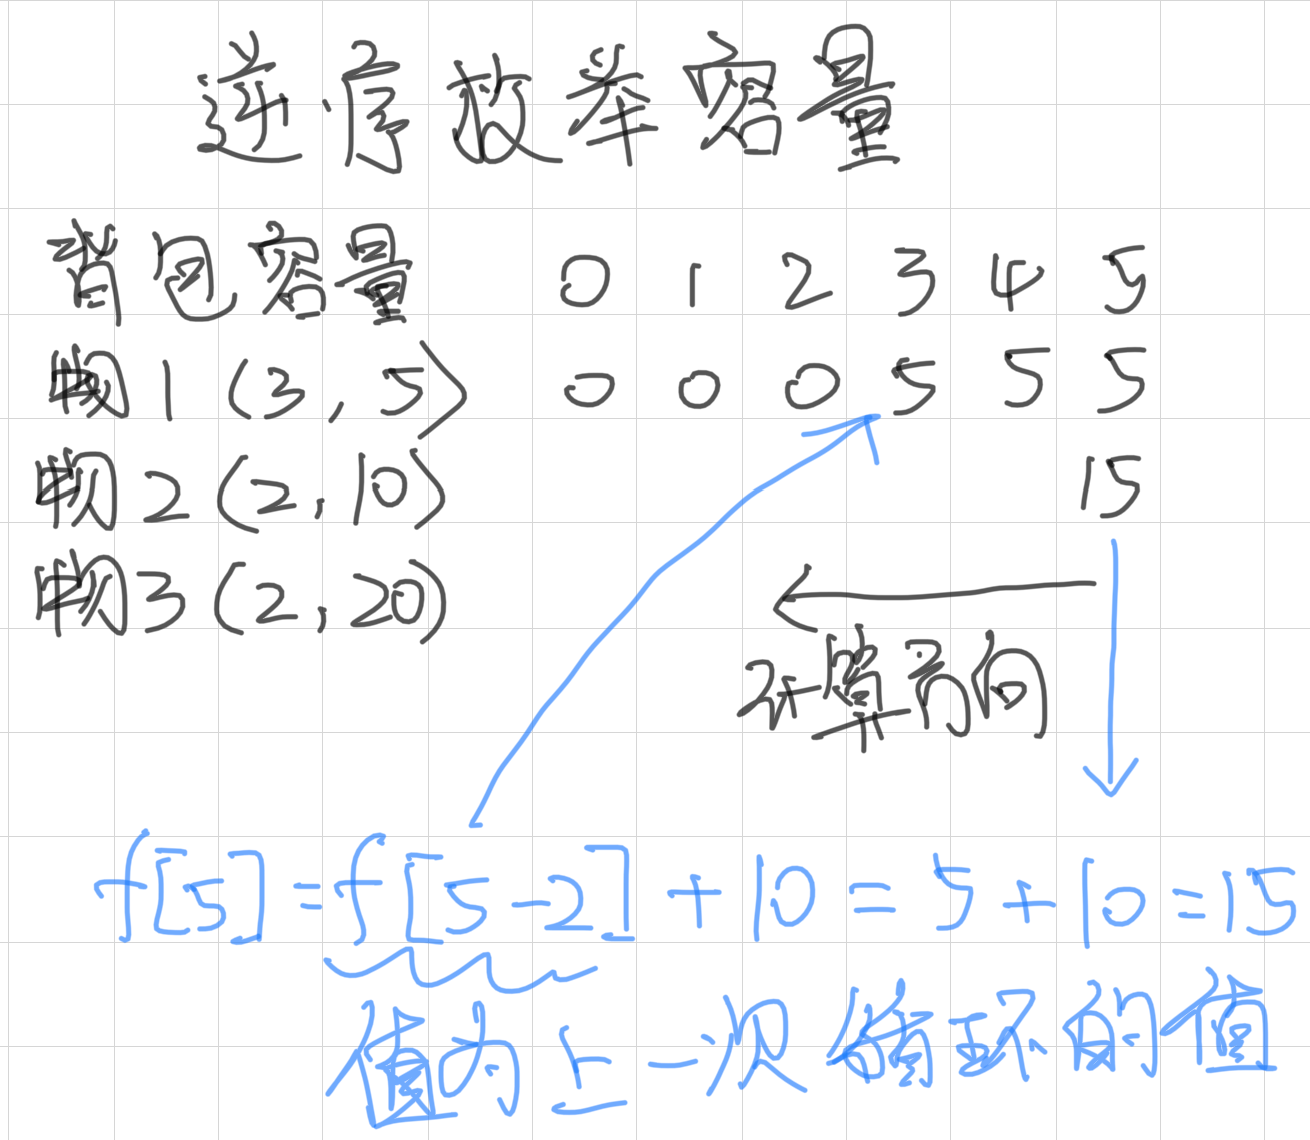 逆序枚举容量
背包容量 0 1 2 3 4 5
物1(3,5) 0 0 0 5 5 5
物2(2,10) 15
物3(2,20)
计算方向
f[5]=f[5-2]+10=5+10=15
值为上一次循环的值